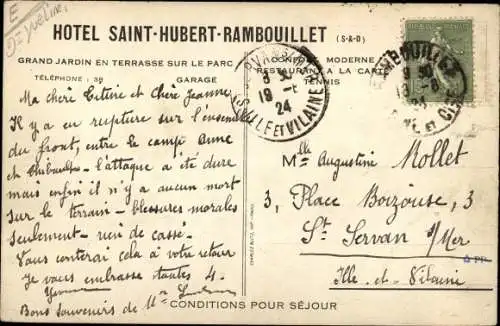 HOTEL SAINT-HUBERT-RAMBOUILLET (S-&-O)
GRAND JARDIN EN TERRASSE SUR LE PARC
CONFORT MODERNE
RESTAURANT A LA CARTE
TÉLÉPHONE : 39 GARAGE TENNIS
19 -
24
ILLE ET VILAINE
RAMBOUILLET
Ma chère et Chère Jeanne,
Il y a eu rupture sur l'ensemble
du front, entre le camp Anne
et - l'attaque a été dure
mais enfin il n'y a aucun mort
sur le terrain - blessures morales
seulement - rien de cassé.
Vous conterai cela à votre retour
Je vous embrasse toutes 4.
Bons souvenirs de
Mlle Augustine Mollet
3, Place Bouzouse, 3
St Servan s/Mer
Ille-et-Vilaine
CONDITIONS POUR SÉJOUR